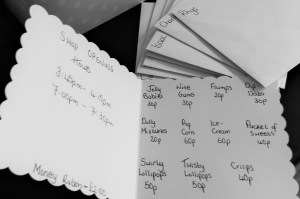 Shop Opening
Hours
3:45pm - 4:15pm
7:00pm - 7:30pm
Money Taken -
Jelly Babies 20p
Wine Gums 30p
Flumps 20p
Dip Dabs 30p
Dolly Mixtures 20p
Pop Corn 60p
Ice-Cream 60p
Packet of Sweets 45p
Swirly Lollipops 50p
Twisty Lollipops 50p
Crisps 40p